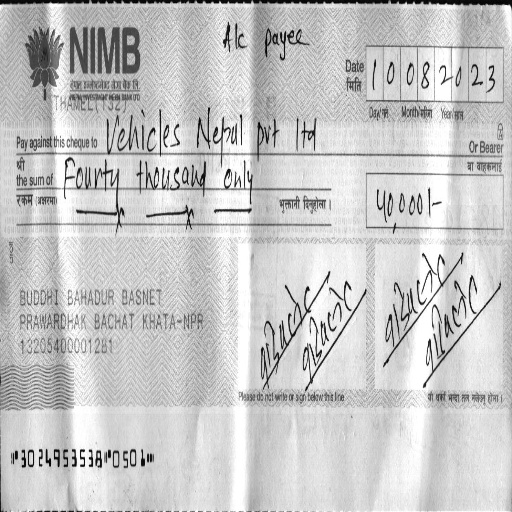 NIMB
A/c payee
नेपाल इन्भेष्टमेन्ट मेगा बैंक लि.
NEPAL INVESTMENT MEGA BANK LTD
THAMEL(752)
Date
मिति
10082023
Day/गते Month/महिना Year/साल
Pay against this cheque to Vehicles Nepal pvt ltd
Or Bearer
श्री
वा वाहकलाई
the sum of Fourty thousand only
रकम (अक्षरमा)
भुक्तानी दिनुहोला ।
40,000/-
BUDDHI BAHADUR BASNET
PRAWARDHAK BACHAT KHATA-NPR
13205400001281
Please do not write or sign below this line
यो धर्का भन्दा तल नलेख्नु होला ।
"3024953538"0501"